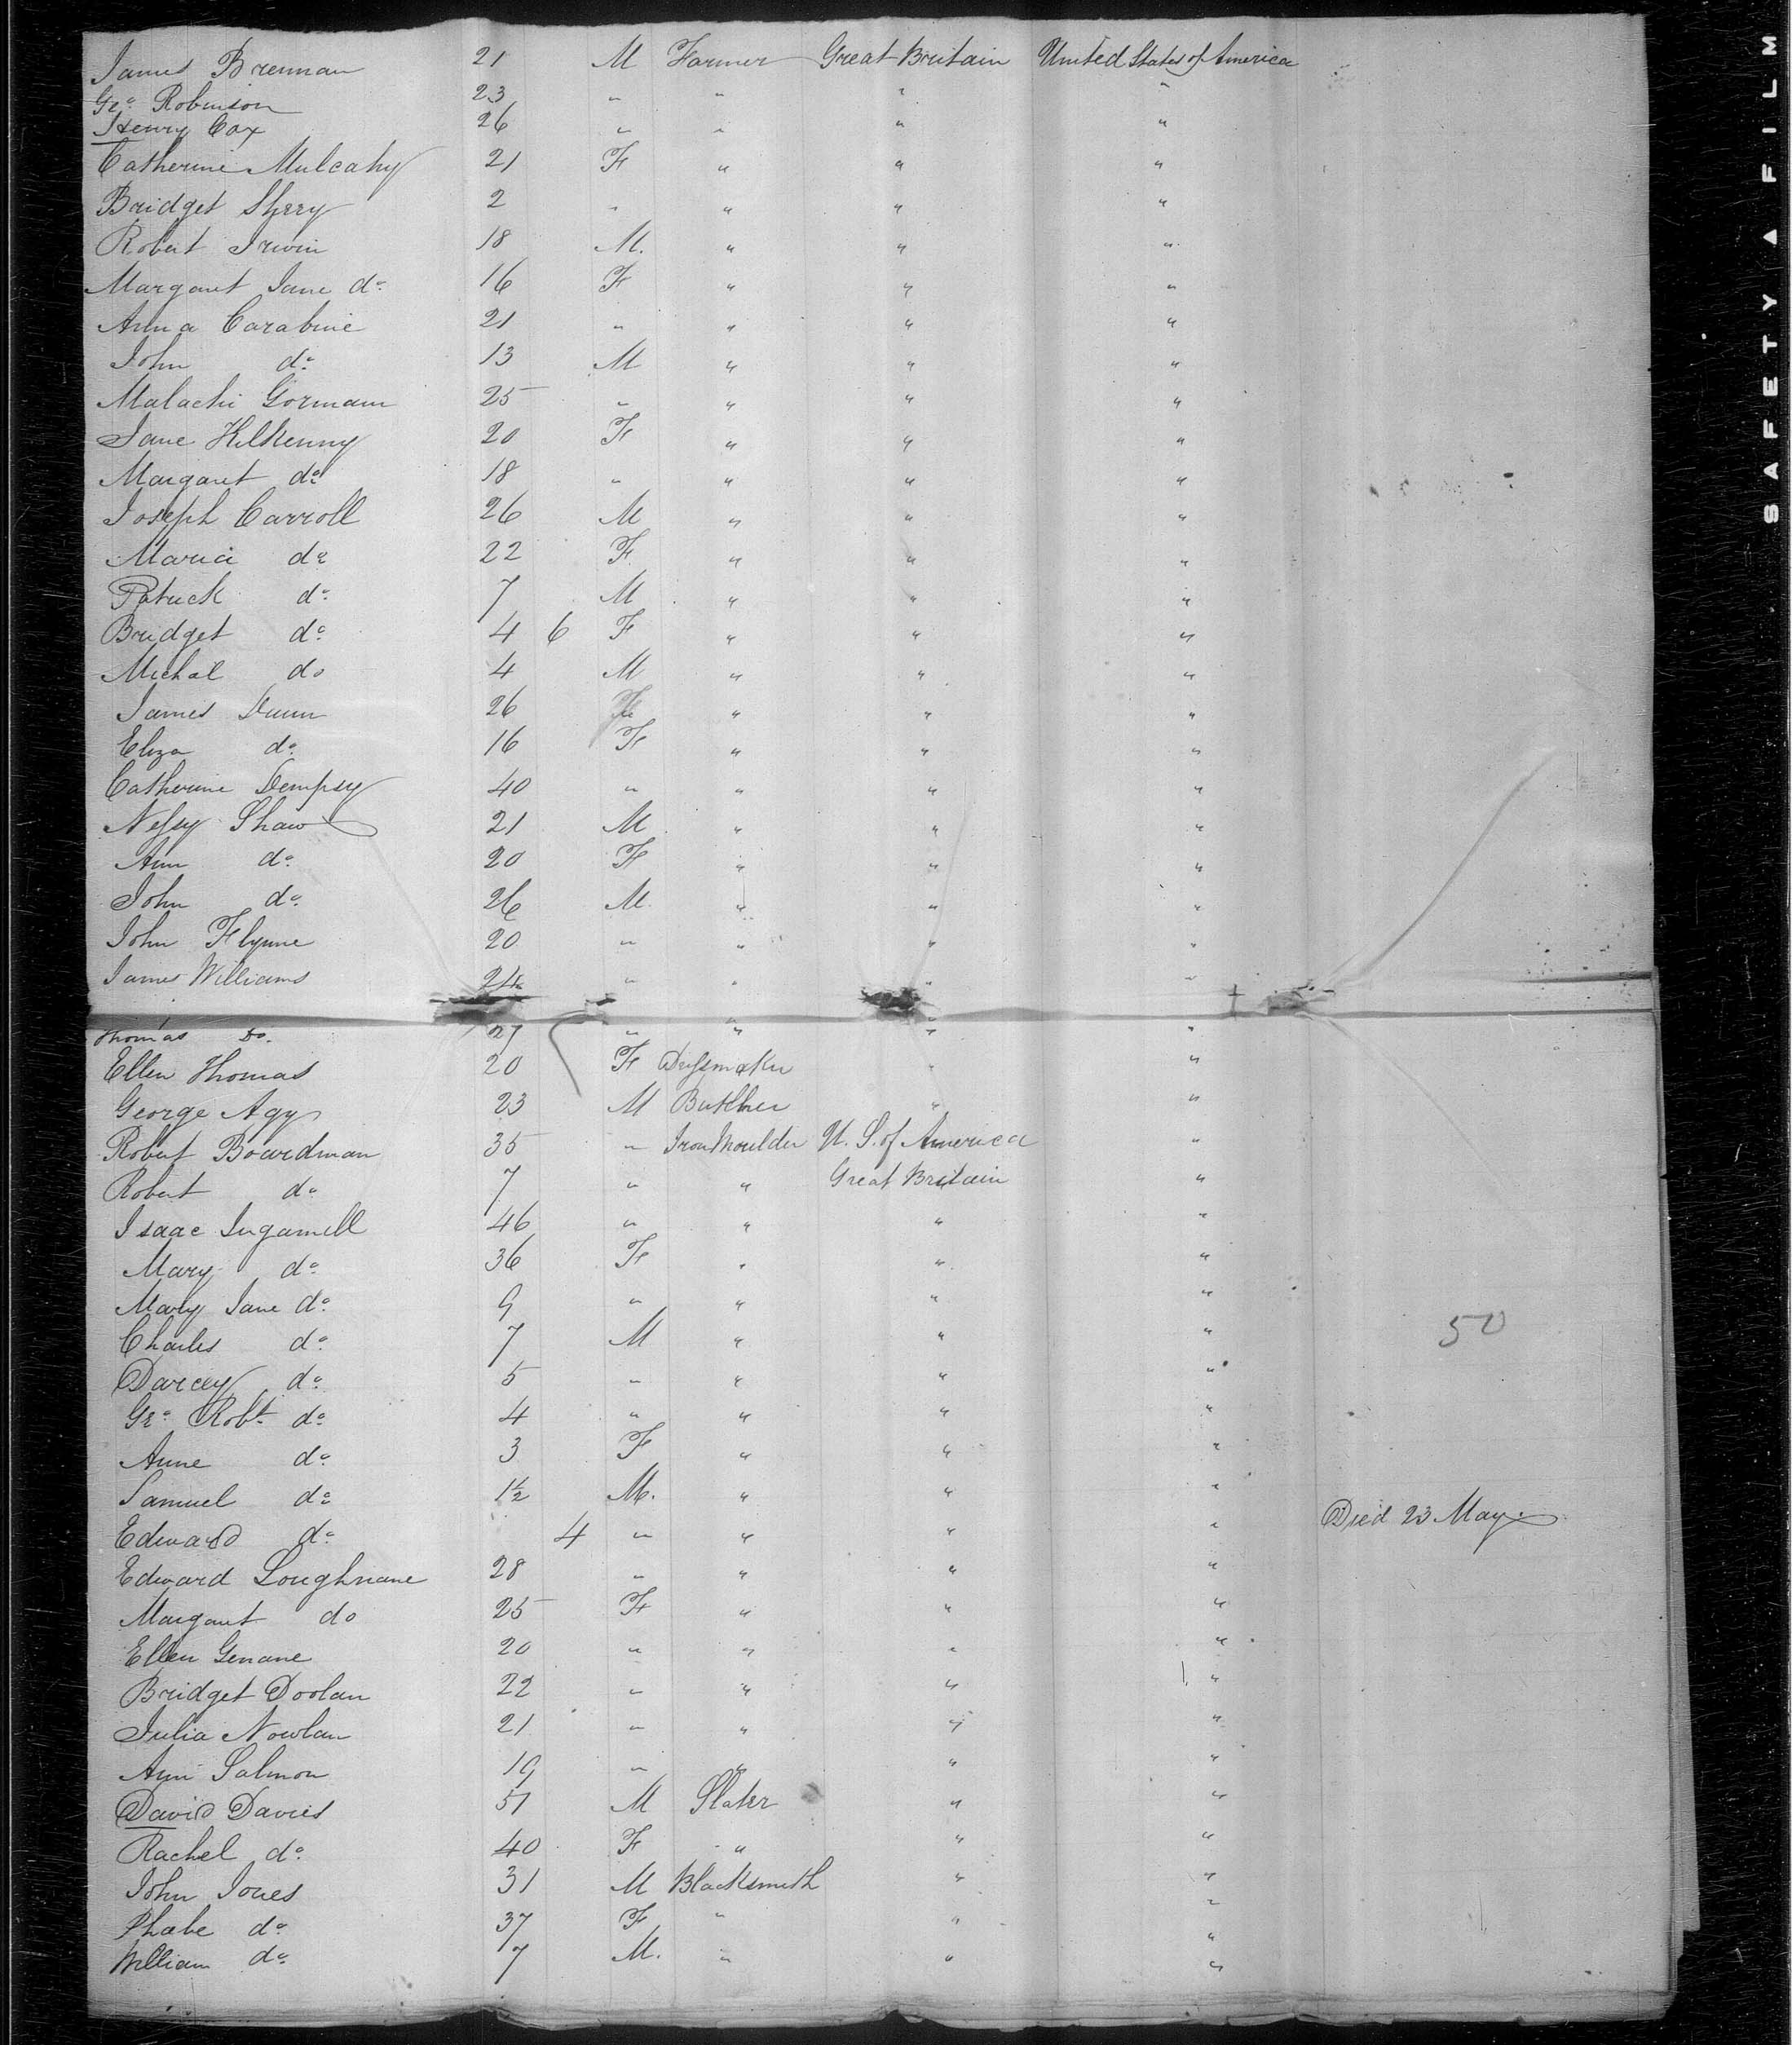 James Brennan 21 M Farmer Great Britain United States of America
Geo Robinson 23 " " " "
Henry Cox 26 " " " "
Catherine Mulcahy 21 F " " "
Bridget Sherry 2 " " " "
Robert Irwin 18 M. " " "
Margaret Jane do 16 F " " "
Anna Carabine 21 " " " "
John do 13 M " " "
Malachi Gormam 25 " " " "
Jane Kilkenny 20 F " " "
Margaret do 18 " " " "
Joseph Carroll 26 M " " "
Maria do 22 F " " "
Patrick do 7 M " " "
Bridget do 4 6 F " " "
Michal do 4 M " " "
James Dunn 26 " " "
Eliza do 16 F " " "
Catherine Dempsy 40 " " " "
Nessy Shaw 21 M " " "
Ann do 20 F " " "
John do 26 M " " "
John Flynne 20 " " " "
James Williams 24 " " " "
Thomas Do. 27 " " " "
Ellen Thomas 20 F Dressmaker " "
George Agy 23 M Butcher " "
Robert Boardman 35 " Iron Moulder U. S. of America "
Robert do 7 " " Great Britain "
Isaac Ingamell 46 " " " "
Mary do 36 F " " "
Mary Jane do 9 " " " "
Charles do 7 M " " "
Darcey do 5 " " " "
Geo Robt do 4 " " " "
50
Anne do 3 F " " "
Samuel do 1½ M. " " "
Edward do 4 " " " " Died 23 May.
Edward Loughnane 28 " " " "
Margaret do 25 F " " "
Ellen Genane 20 " " " "
Bridget Doolan 22 " " " "
Julia Nowlan 21 " " " "
Ann Salmon 19 " " " "
David Davies 51 M Slater " "
Rachel do 40 F " " "
John Jones 31 M Blacksmith " "
Phabe do 37 F " " "
William do 7 M. " " "
SAFETY A FILM